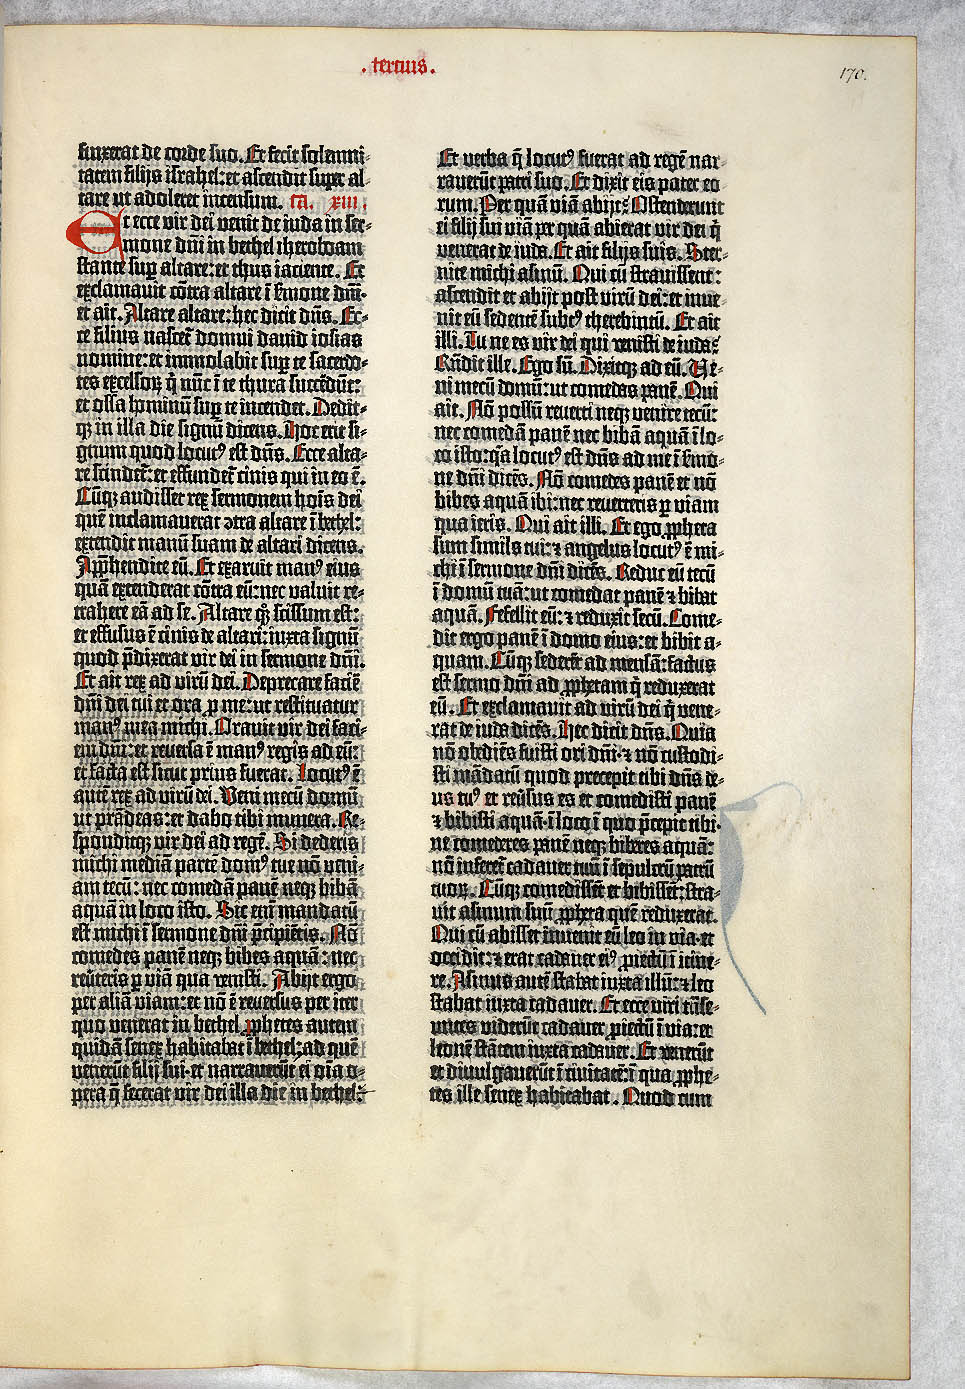 . tercius .
170.
finxerat de corde suo. Et fecit solenni-
tatem filijs israhel: et ascendit super al-
tare ut adoleret incensum. ca. xiii.
Et ecce vir dei venit de iuda in ser-
mone dñi in bethel iheroboam
stante sup altare: et thus iaciente. Et
exclamavit cõtra altare ĩ ẜmone dñi.
et ait. Altare altare: hec dicit dñs. Ec-
ce filius nascet᷑ domui david iosias
nomine: et immolabit sup te sacerdo-
tes excelsoꝝ q̃ nũc ĩ te thura succẽdũt:
et ossa hominũ sup te incendet. Dedit-
qꝫ in illa die signũ dicens. Hoc erit si-
gnum quod locutꝰ est dñs. Ecce alta-
re scindet᷑: et effundet᷑ cinis qui in eo ẽ.
Cũqꝫ audisset rex sermonem hoĩs dei
quẽ inclamauerat ꝯtra altare ĩ bethel:
extendit manũ suam de altari dicens.
Apphendite eũ. Et exaruit manꝰ eius
quã extenderat cõtra eũ: nec valuit re-
trahere eã ad se. Altare qꝫ scissum est:
et effusus ẽ cinis de altari: iuxta signũ
quod p̃dixerat vir dei in sermone dñi.
Et ait rex ad virũ dei. Deprecare faciẽ
dñi dei tui et ora ꝓ me: ut restituatur
manꝰ mea michi. Oravit vir dei faci-
em dñi: et reversa ẽ manꝰ regis ad eũ:
et facta est sicut prius fuerat. Locutꝰ ẽ
autẽ rex ad virũ dei. Veni mecũ domũ
ut prãdeas: et dabo tibi munera. Re-
sponditqꝫ vir dei ad regẽ. Si dederis
michi mediã partẽ domꝰ tue nõ veni-
am tecũ: nec comedã panẽ neqꝫ bibã
aquã in loco isto. Sic enĩ mandatũ
est michi ĩ sermone dñi p̃cipiẽtis. Nõ
comedes panẽ neqꝫ bibes aquã: nec
reũteris ꝑ viã qua venisti. Abijt ergo
per aliã viam: et nõ ẽ reuersus per iter
quo venerat in bethel. ꝓphetes autem
quidã senex habitabat ĩ bethel: ad quẽ
venerũt filij sui. et narrauerũt ei oĩa o-
pera q̃ fecerat vir dei illa die in bethel:
Et verba q̃ locutꝰ fuerat ad regẽ nar-
rauerũt patri suo. Et dixit eis pater eo-
rum. Per quã viã abijt? Ostenderunt
ei filij sui viã per quã abierat vir dei q̃
venerat de iuda. Et ait filijs suis. Ster-
nite michi asinũ. Qui cũ strauissent:
ascendit et abijt post virũ dei: et inue-
nit eũ sedentẽ subtꝰ therebintũ. Et ait
illi. Tu ne es vir dei qui venisti de iuda?
Rñdit ille. Ego sũ. Dixitqꝫ ad eũ. Ve-
ni mecũ domũ: ut comedas panẽ. Qui
ait. Nõ possũ reuerti neqꝫ venire tecũ:
nec comedã panẽ nec bibã aquã ĩ lo-
co isto: q̃a locutꝰ est dñs ad me ĩ ẜmo-
ne dñi dicẽs. Nõ comedes panẽ et nõ
bibes aquã ibi: nec reuerteris ꝑ viam
qua ieris. Qui ait illi. Et ego ꝓpheta
sum similis tui: ⁊ angelus locutꝰ ẽ mi-
chi ĩ sermone dñi dicẽs. Reduc eũ tecũ
ĩ domũ tuã: ut comedat panẽ ⁊ bibat
aquã. Fefellit eũ: ⁊ reduxit secũ. Come-
dit ergo panẽ ĩ domo eius: et bibit a-
quam. Cũqꝫ sederẽt ad mensã: factus
est sermo dñi ad ꝓphetam q̃ reduxerat
eũ. Et exclamauit ad virũ dei q̃ vene-
rat de iuda dicẽs. Hec dicit dñs. Quia
nõ obediẽs fuisti ori dñi. ⁊ nõ custodi-
sti mãdatũ quod precepit tibi dñs de-
us tuꝰ et reũsus es et comedisti panẽ
⁊ bibisti aquã. ĩ loco ĩ quo p̃cepit tibi.
ne comederes panẽ neqꝫ biberes aquã:
nõ inferet᷑ cadauer tuũ ĩ sepulcrũ patrũ
tuoꝝ. Cũqꝫ comedisset et bibisset: stra-
uit asinum suũ ꝓphete quẽ reduxerat.
Qui cũ abisset ĩuenit eũ leo in via. et
occidit: ⁊ erat cadauer eiꝰ ꝓiectũ ĩ itine-
re. Asinus autẽ stabat iuxta illũ: ⁊ leo
stabat iuxta cadauer. Et ecce viri trãse-
untes viderũt cadauer ꝓiectũ ĩ via: et
leonẽ stãtem iuxta cadauer. Et venerũt
et diuulgauerũt ĩ ciuitate: ĩ qua ꝓphe-
tes ille senex habitabat. Quod cum